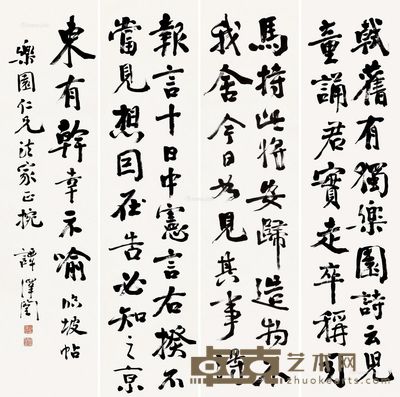 軾舊有獨樂園詩云兒
童誦君實走卒稱司
馬持此將安歸造物不
我舍今日見其事得
報言十日中憲言右揆不
當見想因在告必知之京
東有幹幸示喻 臨坡帖
樂園仁兄法家正捥 譚澤闓
卓克艺术网
www.zhuokearts.com